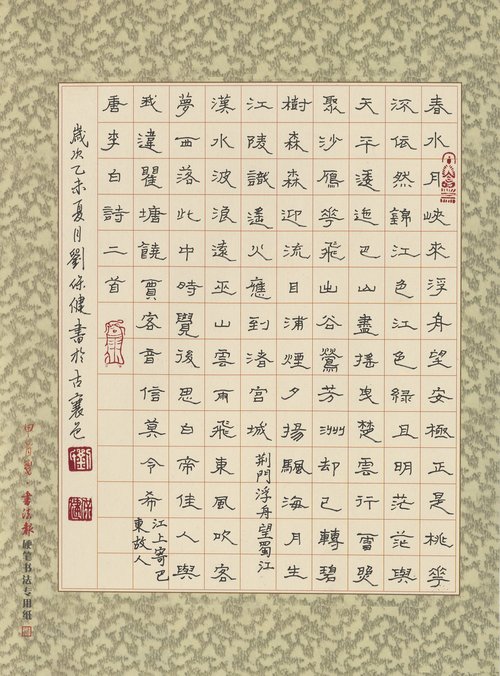 春水月峽來浮舟望安極正是桃花
流依然錦江色江色綠且明茫茫與
天平逶迤巴山盡搖曳楚雲行雪照
聚沙鴈花飛出谷鶯芳洲却已轉碧
樹森森迎流目浦煙夕揚颿海月生
江陵識遙火應到渚宮城
荆門浮舟望蜀江
漢水波浪遠巫山雲雨飛東風吹客
夢西落此中時覺後思白帝佳人與
我違瞿塘饒賈客音信莫令希
江上寄巴
東故人
唐李白詩二首
歲次乙未夏月劉保健書於古襄邑
書法報
硬笔书法专用纸